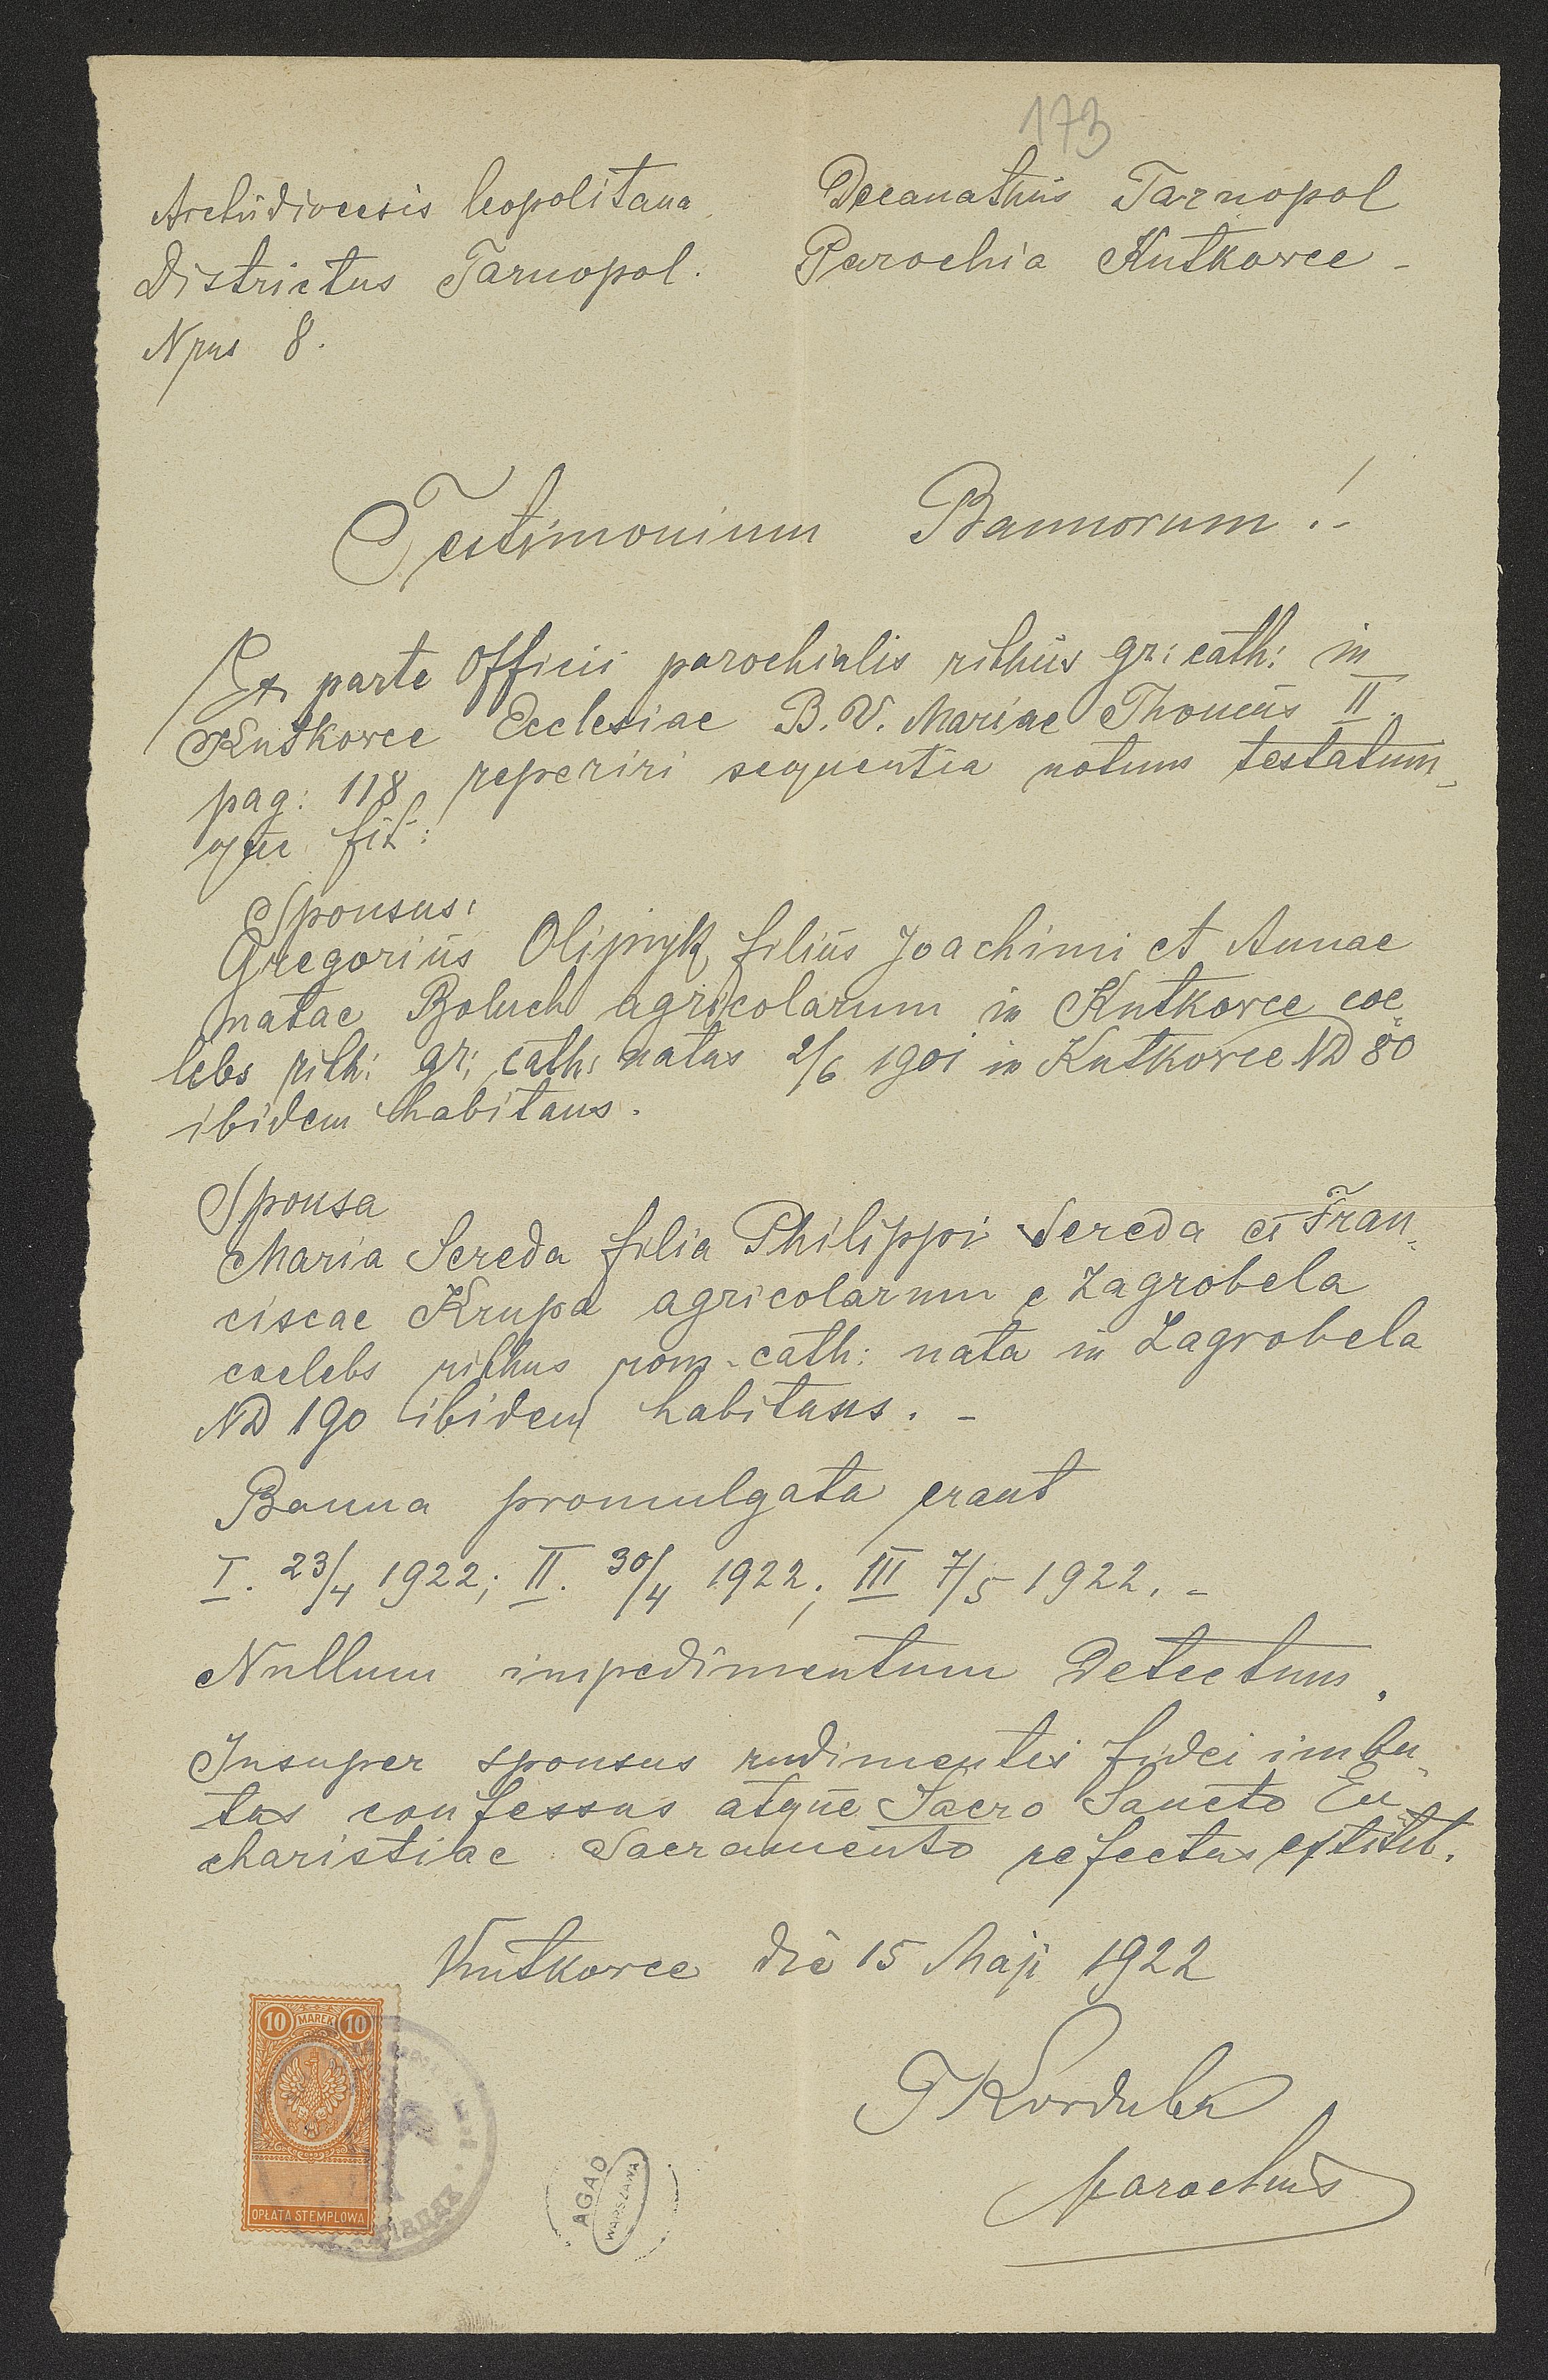 173
Archidiocesis leopolitana
Decanathus Tarnopol
Districtus Tarnopol.
Parochia Kutkowce -
Nrus 8.
Testimonium Bannorum! -
Ex parte Officii parochialis rithus gr: cath: in
Kutkowce Ecclesiae B. V. Mariae Thomus II.
pag: 118 reperiri sequentia notum testatum-
que fit:
Sponsus:
Gregorius Olijnyk filius Joachimi et Annae
natae Boluch agricolarum in Kutkowce coe-
lebs rith: gr: cath: natus 2/6 1901 in Kutkowce ND 80
ibidem habitans.
Sponsa
Maria Sereda filia Philippi Sereda et Fran-
ciscae Krupa agricolarum e Zagrobela
caelebs rithus rom-cath: nata in Zagrobela
ND 190 ibidem habitans. -
Banna promulgata erant
I. 23/4 1922; II. 30/4 1922; III 7/5 1922. -
Nullum impedimentum detectum.
Insuper sponsus rudimentis fidei imbu-
tus confessus atque Sacro Sancto Eu-
charistiae Sacramento refectus extitit.
Kutkowce die 15 Maji 1922
10 MAREK 10
OPŁATA STEMPLOWA
AGAD
WARSZAWA
T Korduba
parochus